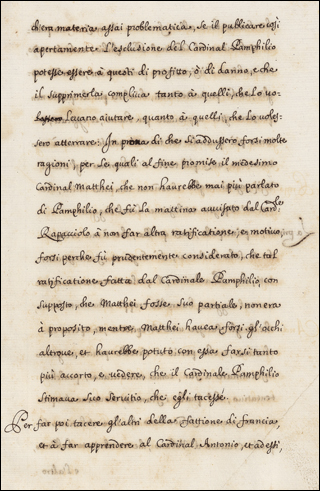 ch'era materia assai problematica, se il publicare così
apertamente l'esclusione del Cardinal Pamphilio
potesse essere à questi di profitto, ò di danno, e che
il supprimerla compliva tanto à quelli, che lo vo-
levano aiutare, quanto à quelli, che lo voles-
sero atterrare. In prova di che si addussero forsi molte
ragioni, per le quali al fine promise il medesimo
Cardinal Matthei, che non haurebbe mai più parlato
di Pamphilio, che fù la mattina auuisato dal Card.le
Rapacciolo à non far altra ratificatione, e motivo
forsi perche fù prudentemente considerato, che tal
ratificatione fatta dal Cardinale Pamphilio, con
supposto, che Matthei fosse suo partiale, non era
à proposito, mentre Matthei hauea forsi gl'occhi
altroue, et haurebbe potuto con essa farsi tanto
più accorto, e uedere, che il Cardinale Pamphilio
stimaua suo seruitio, che egli tacesse.
Per far poi tacere gl'altri della fattione di Francia,
et à far apprendere al Cardinal Antonio, et à desti,